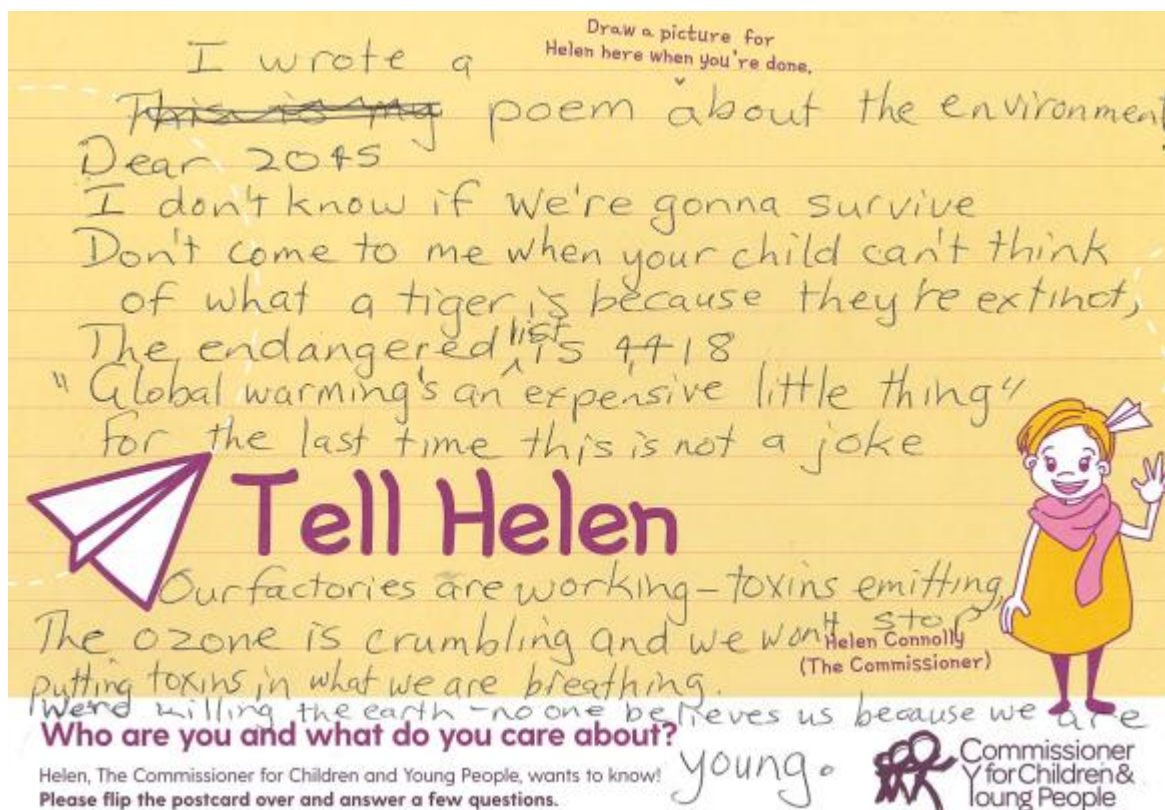 Draw a picture for
Helen here when you're done.
I wrote a
This is my poem about the environment
Dear 2045
I don't know if we're gonna survive
Don't come to me when your child can't think
of what a tiger is because they're extinct,
The endangered list is 4,418
"Global warming's an expensive little thing"
For the last time this is not a joke
Tell Helen
Our factories are working - toxins emitting,
The ozone is crumbling and we won't stop
Helen Connolly
(The Commissioner)
putting toxins in what we are breathing.
We're killing the earth - no one believes us because we are
young.
Who are you and what do you care about?
Helen, The Commissioner for Children and Young People, wants to know!
Please flip the postcard over and answer a few questions.
Commissioner
for Children &
Young People